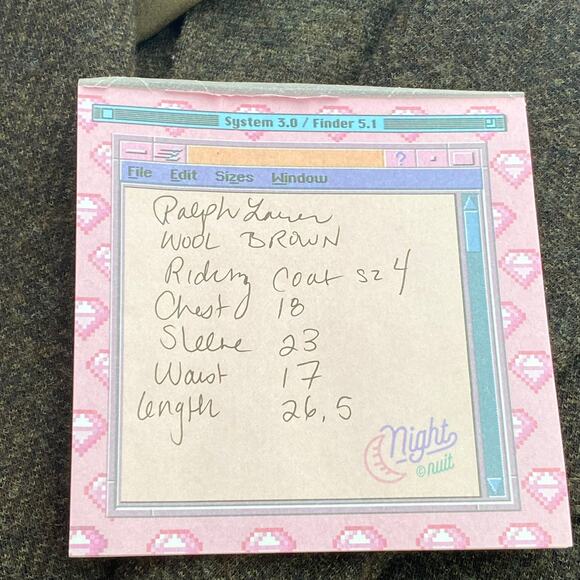 System 3.0 / Finder 5.1
?
File Edit Sizes Window
Ralph Lauren
WOOL BROWN
Riding Coat sz 4
Chest 18
Sleeve 23
Waist 17
length 26.5
Night
© nuit